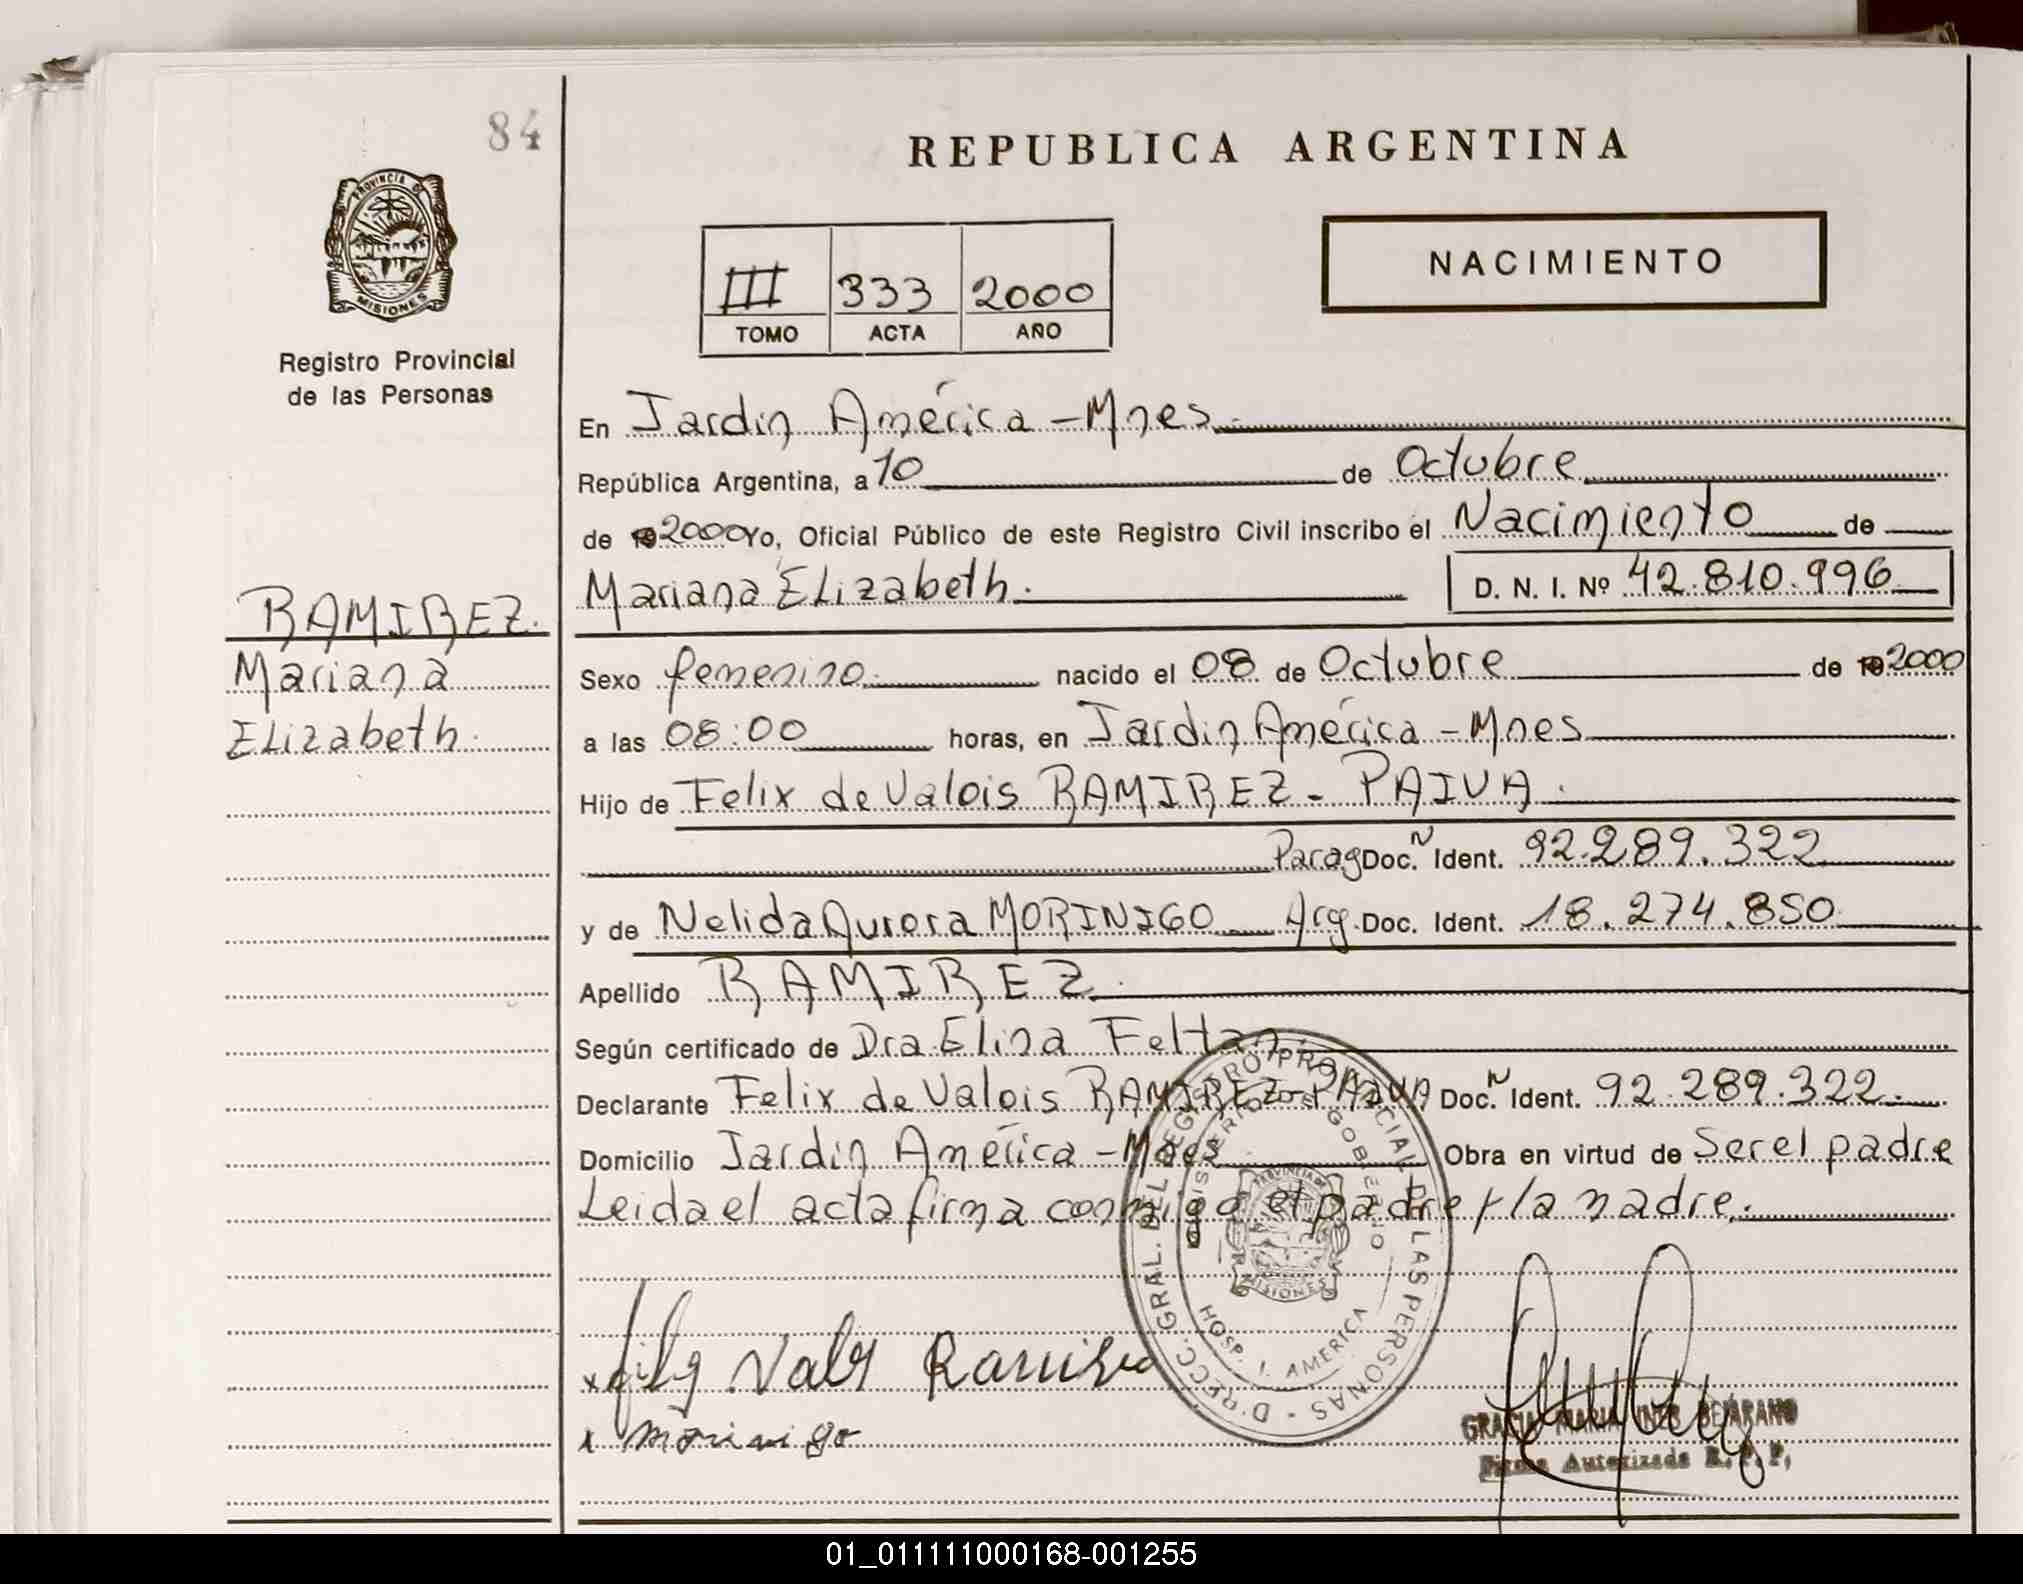 84
REPUBLICA ARGENTINA
PROVINCIA DE
MISIONES
Registro Provincial
de las Personas
III 333 2000
TOMO ACTA AÑO
NACIMIENTO
En Jardin América - Mnes.
República Argentina, a 10 de Octubre
de 19 2000 Yo, Oficial Público de este Registro Civil inscribo el Nacimiento de
Mariana Elizabeth. D. N. I. Nº 42.810.996
RAMIREZ.
Mariana
Elizabeth.
Sexo femenino nacido el 08 de Octubre de 19 2000
a las 08:00 horas, en Jardin América - Mnes
Hijo de Felix de Valois RAMIREZ - PAIVA.
Parag Doc. N Ident. 92.289.322
y de Nelida Aurora MORINIGO Arg. Doc. Ident. 18.274.850
Apellido RAMIREZ.
Según certificado de Dra. Elina Feltan.
Declarante Felix de Valois RAMIREZ - PAIVA Doc. N Ident. 92.289.322.
Domicilio Jardin América - Mnes Obra en virtud de Ser el padre
Leida el acta firma conmigo el padre y la madre.
D'RECC. GRAL. DEL REGISTRO PROVINCIAL DE LAS PERSONAS
MINISTERIO DE GOBIERNO
MISIONES
HOSP. J. AMERICA
x Valois Ramirez
x morinigo
GRACIA MARIA INES BEJARANO
Firma Autorizada R. P. P.
01_011111000168-001255